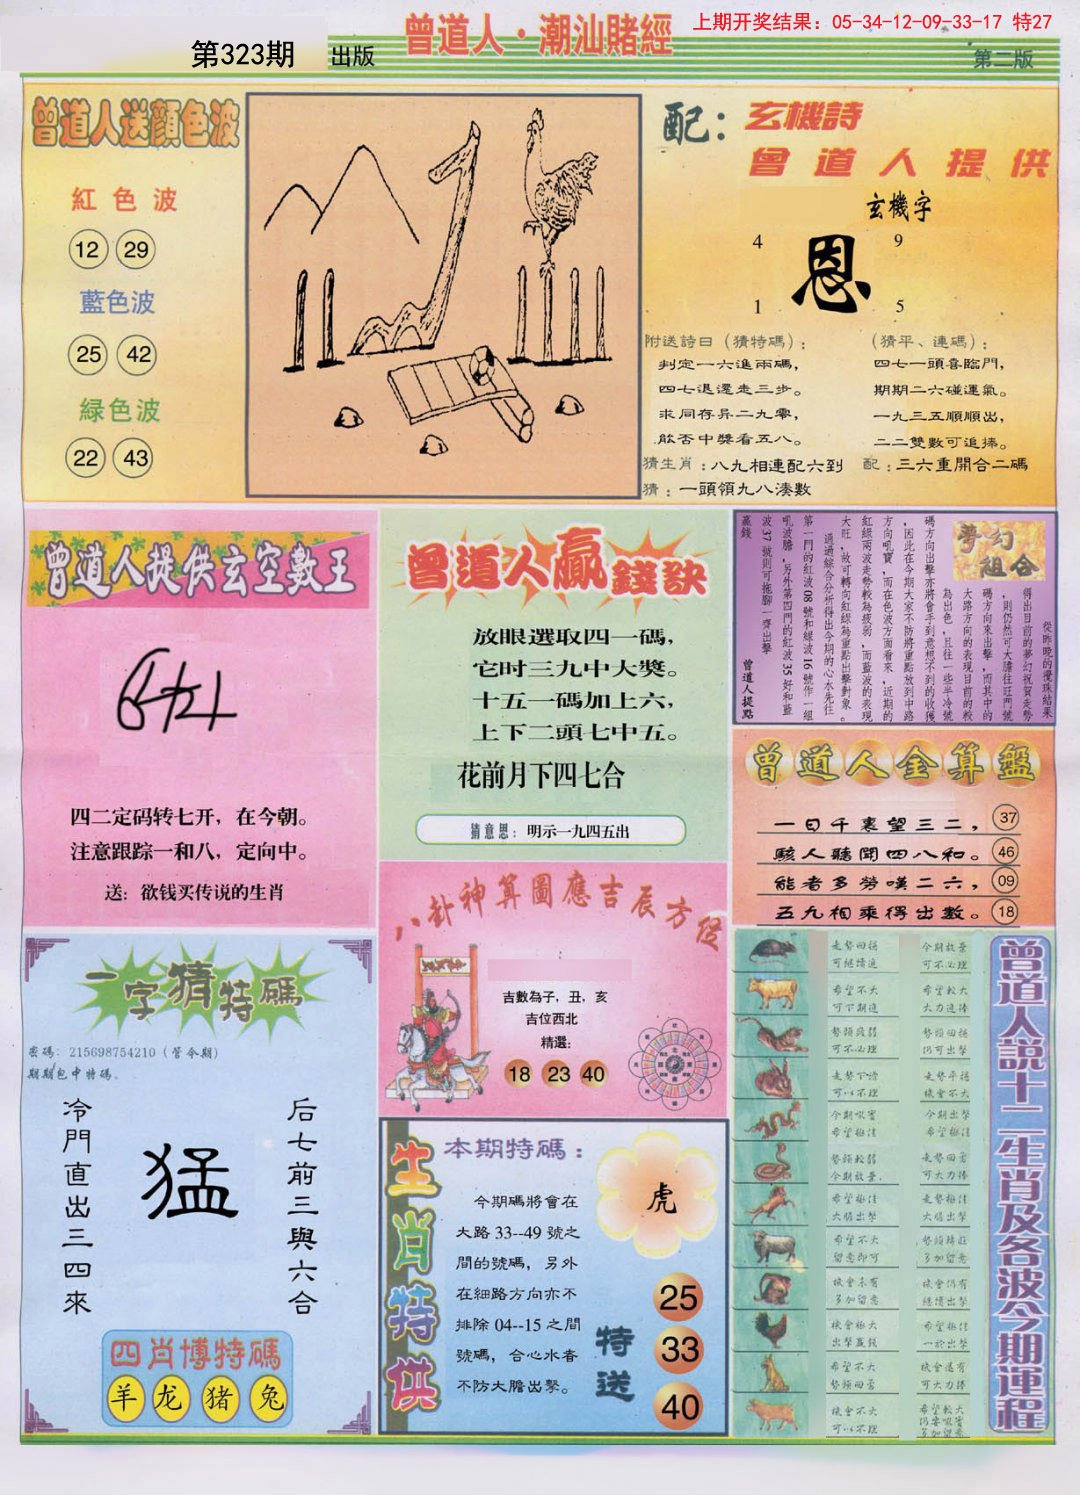 上期开奖结果：05-34-12-09-33-17 特27
第323期 出版
曾道人·潮汕賭經
第二版
曾道人送顏色波
紅色波
12 29
藍色波
25 42
綠色波
22 43
配：玄機詩
曾道人提供
玄機字
4 9
恩
1 5
附送詩曰（猜特碼）：
判定一六進兩碼，
四七退還走三步。
求同存异二九零，
能否中獎看五八。
（猜平、連碼）：
四七一頭喜臨門，
期期二六碰運氣。
一九三五順順出，
二二雙數可追捧。
猜生肖：八九相連配六到
配：三六重開合二碼
猜：一頭領九八湊數
曾道人提供玄空數王
四二定码转七开，在今朝。
注意跟踪一和八，定向中。
送：欲钱买传说的生肖
曾道人贏錢訣
放眼選取四一碼，
它时三九中大獎。
十五一碼加上六，
上下二頭七中五。
花前月下四七合
猜意思：明示一九四五出
夢幻組合
從昨晚的攪珠結果
得出目前的夢幻祝賀走勢
，則仍然可大膽往旺門號
碼方向來出擊，而其中的
大路方向的表現目前的較
為出色，且往一些半冷號
碼方向出擊亦將會手到意想不到的收獲
，因此在今期大家不防將重點放到中路
方向吼寶，而在色波方面看來，近期的
紅綠兩波走勢較為疲弱，而藍波的表現
大旺，故可轉向紅綠為重點出擊對象。
通過綜合分析得出今期的心水先往
第一門的紅波08號和綠波16號作一組
吼波膽，另外第四門的紅波35好和藍
波37號則可拖腳一齊出擊
贏錢
曾道人提點
曾道人金算盤
一日千裏望三二， 37
駭人聽聞四八和。 46
能者多勞嘆二六， 09
五九相乘得出數。 18
八卦神算圖應吉辰方位
吉數為子，丑，亥
吉位西北
精選：
18 23 40
一字猜特碼
密碼：215698754210（管今期）
期期包中特碼。
冷門直出三四來
猛
后七前三與六合
四肖博特碼
羊 龙 猪 兔
生肖特供
本期特碼：
今期碼將會在
大路33--49號之
間的號碼，另外
在細路方向亦不
排除04--15之間
號碼，合心水春
不防大膽出擊。
虎
特送
25
33
40
曾道人說十二生肖及各波今期運程
走勢回揚
可繼續追
今期放棄
可不必理
希望不大
可下期追
希望較大
大力追捧
勢頭疲弱
可不必理
勢頭回揚
仍可出擊
走勢下滑
可以不理
走勢平穩
機會不大
今期吼寶
希望極佳
今期出擊
希望極佳
勢頭較弱
今期放棄
走勢回勇
可大力捧
希望極佳
大膽出擊
走勢極佳
大膽出擊
希望不大
留意即可
多加留意
機會未有
多加留意
機會仍有
繼續出擊
機會極大
出擊贏錢
希望極佳
希望不大
勢頭回勇
機會還有
可大力捧
機會不大
可以不理
希望較大